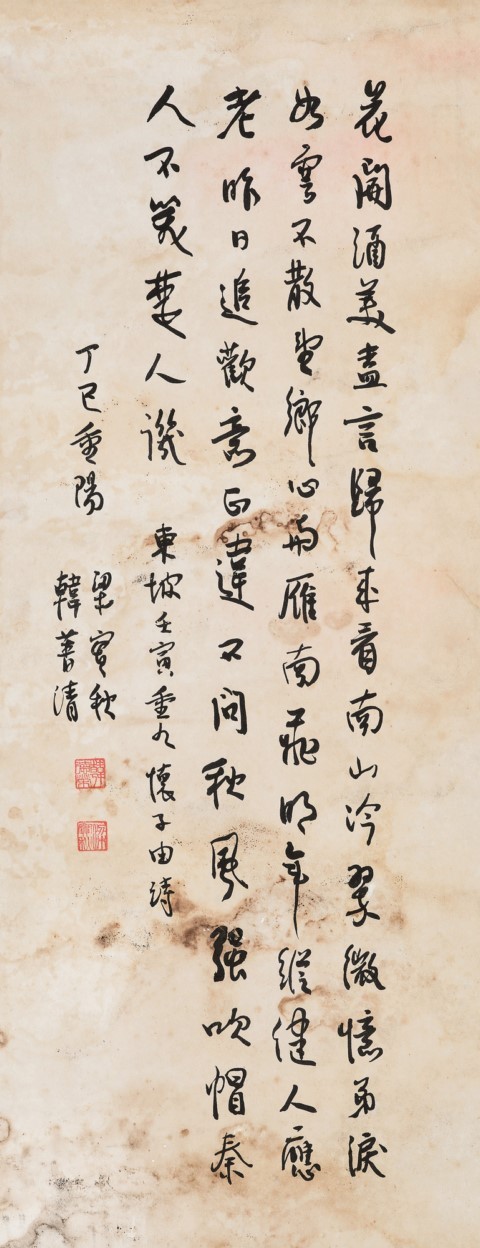 花開酒美盍言歸來看南山冷翠微憶弟淚
如雲不散望鄉心與雁南飛明年縱健人應
老昨日追歡意正違不問秋風強吹帽秦
人不笑楚人譏
東坡壬寅重九懷子由詩
丁巳重陽
梁實秋
韓菁清